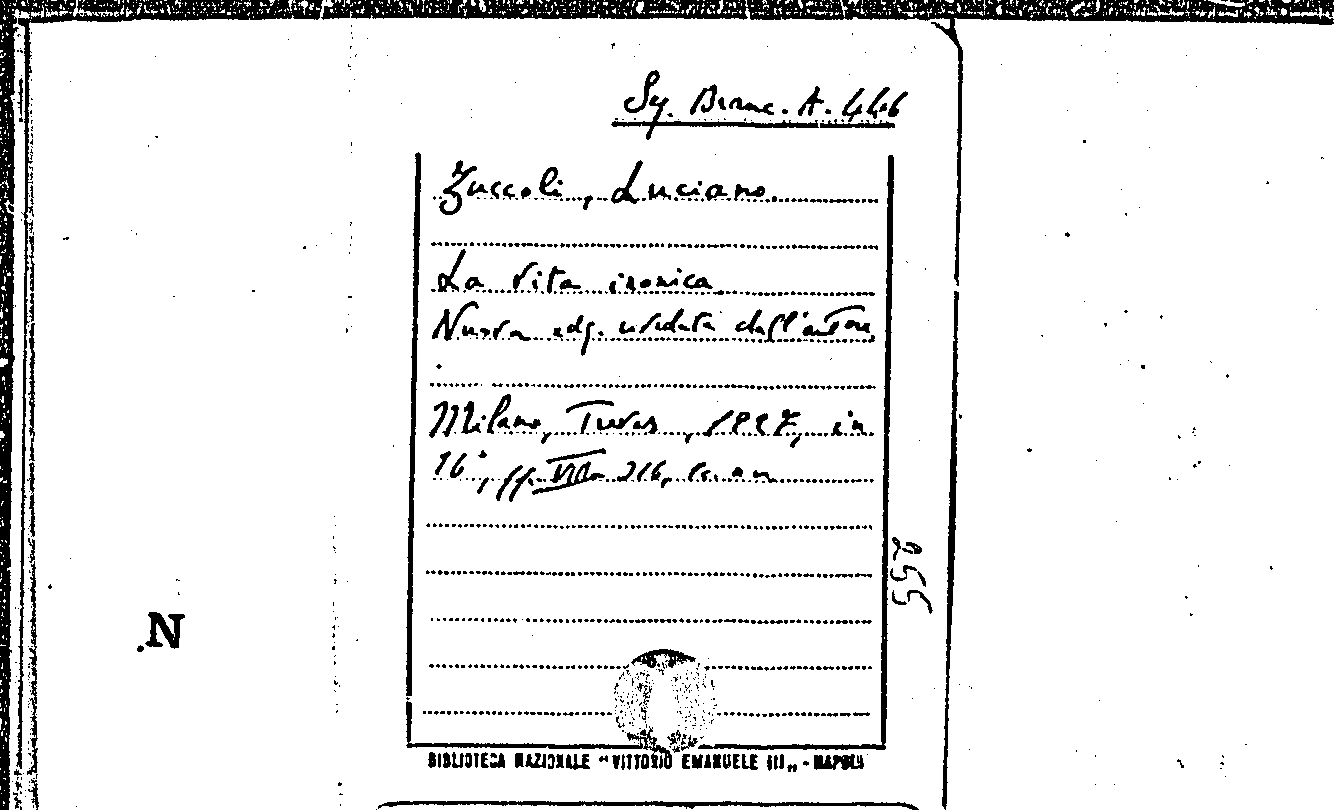 Sy. Branc. A. 446
Zuccoli, Luciano.
La Vita ironica
Nuova edz. riveduta dall'autore.
Milano, Treves, in
16°, pp. VIII- 216,
255
N.
BIBLIOTECA NAZIONALE "VITTORIO EMANUELE III„ - NAPOLI